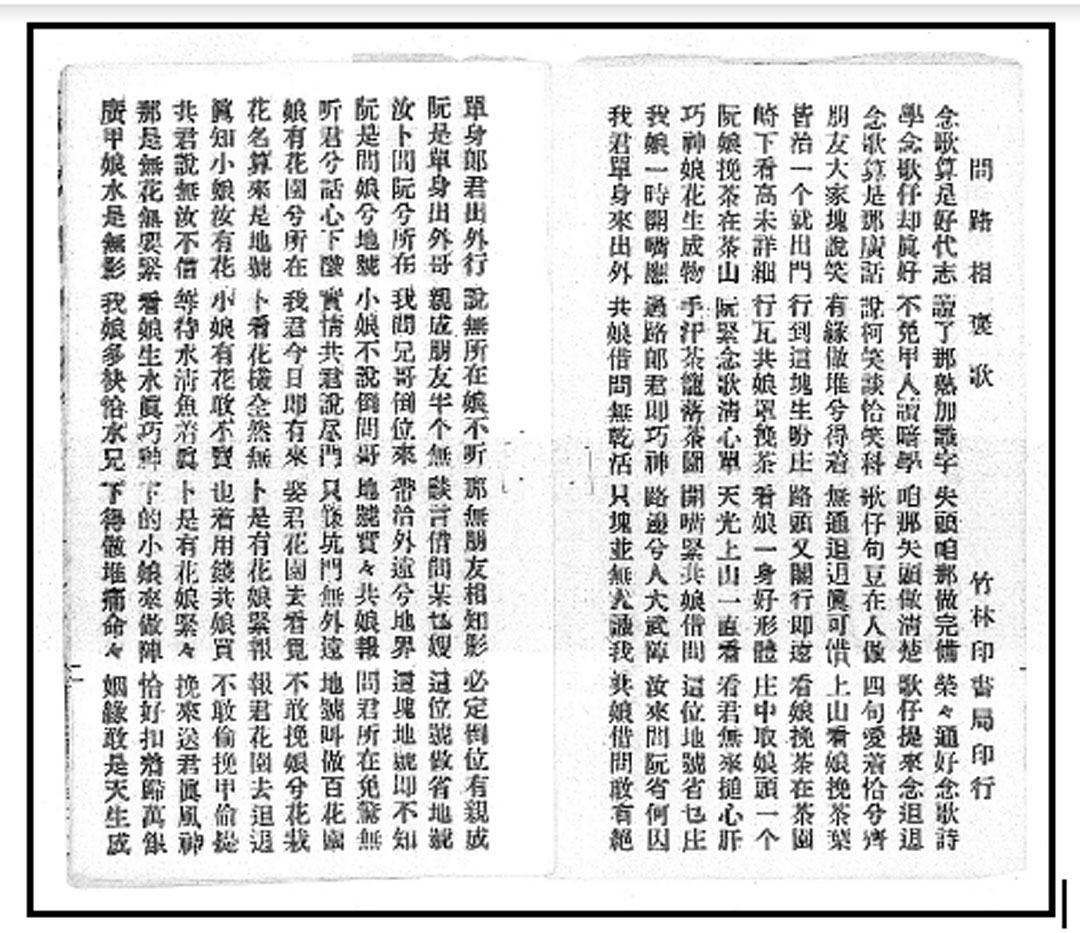 問路相褒歌 竹林印書局印行
念歌算是好代志 讀了那熟加識字 失頭咱那做完備 榮々通好念歌詩
學念歌仔却眞好 不免甲人讀暗學 咱那失頭做清楚 歌仔提來念𨑨迌
念歌算是那廣話 說柯笑談恰笑科 歌仔句豆在人做 四句愛著恰兮齊
朋友大家塊說笑 有緣做堆兮得著 無通𨑨迌眞可惜 上山看娘挽茶葉
皆治一个就出門 行到這塊生盼庄 路頭又闊行即遠 看娘挽茶在茶園
崎下看高未詳細 行瓦共娘罩挽茶 看娘一身好形體 庄中取娘頭一个
阮娘挽茶在茶山 阮緊念歌清心單 天光上山一直看 看君無來搥心肝
巧神娘花生成物 手扞茶籠落茶園 開嘴緊共娘借問 這位地號省乜庄
我娘一時開嘴應 過路郎君即巧神 路邊兮人大武陣 汝來問阮省何因
我君單身來出外 共娘借問無乾活 只塊並無人識我 共娘借問敢有絕
單身郎君出外行 說無所在娘不听 那無朋友相知影 必定倒位有親成
阮是單身出外哥 親成朋友半个無 談言借問某乜嫂 這位號做省地號
汝卜問阮兮所在 我問兄哥倒位來 帶治外遠兮地界 這塊地號即不知
阮是問娘兮地號 小娘不說倒問哥 地號實々共娘報 問君所在免驚無
听君兮話心下酸 實情共君說尽門 只條坑門無外遠 地號叫做百花園
娘有花園兮所在 我君今日即有來 娶君花園去看覓 不敢挽娘兮花栽
花名算來是地號 卜看花欉全然無 卜是有花娘緊報 報君花園去𨑨迌
眞知小娘汝有花 小娘有花敢不賣 也着用錢共娘買 不敢偷挽甲偷提
共君說無汝不信 等待水清魚着眞 卜是有花娘緊々 挽來送君眞風神
那是無花無要緊 看娘生水眞巧神 下的小娘來做陣 恰好扣着歸萬銀
廣甲娘水是無影 我娘多袂恰水兄 下得做堆痛命々 姻緣敢是天生成